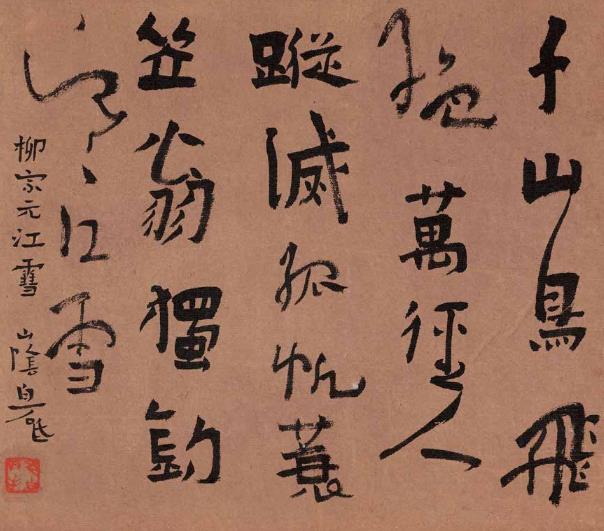 千山鳥飛
絶萬徑人
蹤滅孤帆蓑
笠翁獨釣
寒江雪
柳宗元江雪 山陰